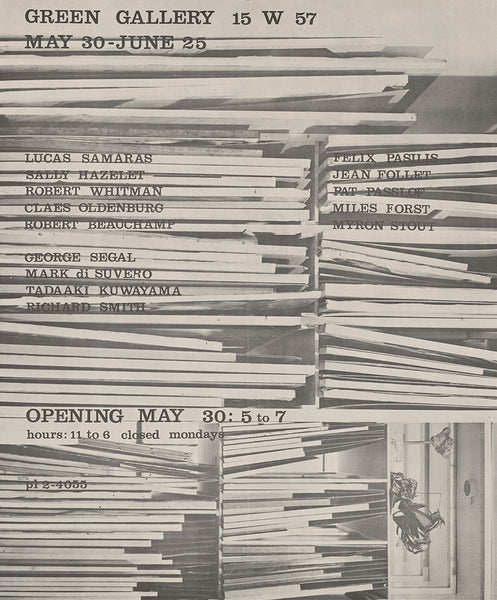 GREEN GALLERY 15 W 57
MAY 30-JUNE 25
LUCAS SAMARAS
SALLY HAZELET
ROBERT WHITMAN
CLAES OLDENBURG
ROBERT BEAUCHAMP
GEORGE SEGAL
MARK di SUVERO
TADAAKI KUWAYAMA
RICHARD SMITH
FELIX PASILIS
JEAN FOLLET
PAT PASSLOF
MILES FORST
MYRON STOUT
OPENING MAY 30: 5 to 7
hours: 11 to 6 closed mondays
pl 2-4055